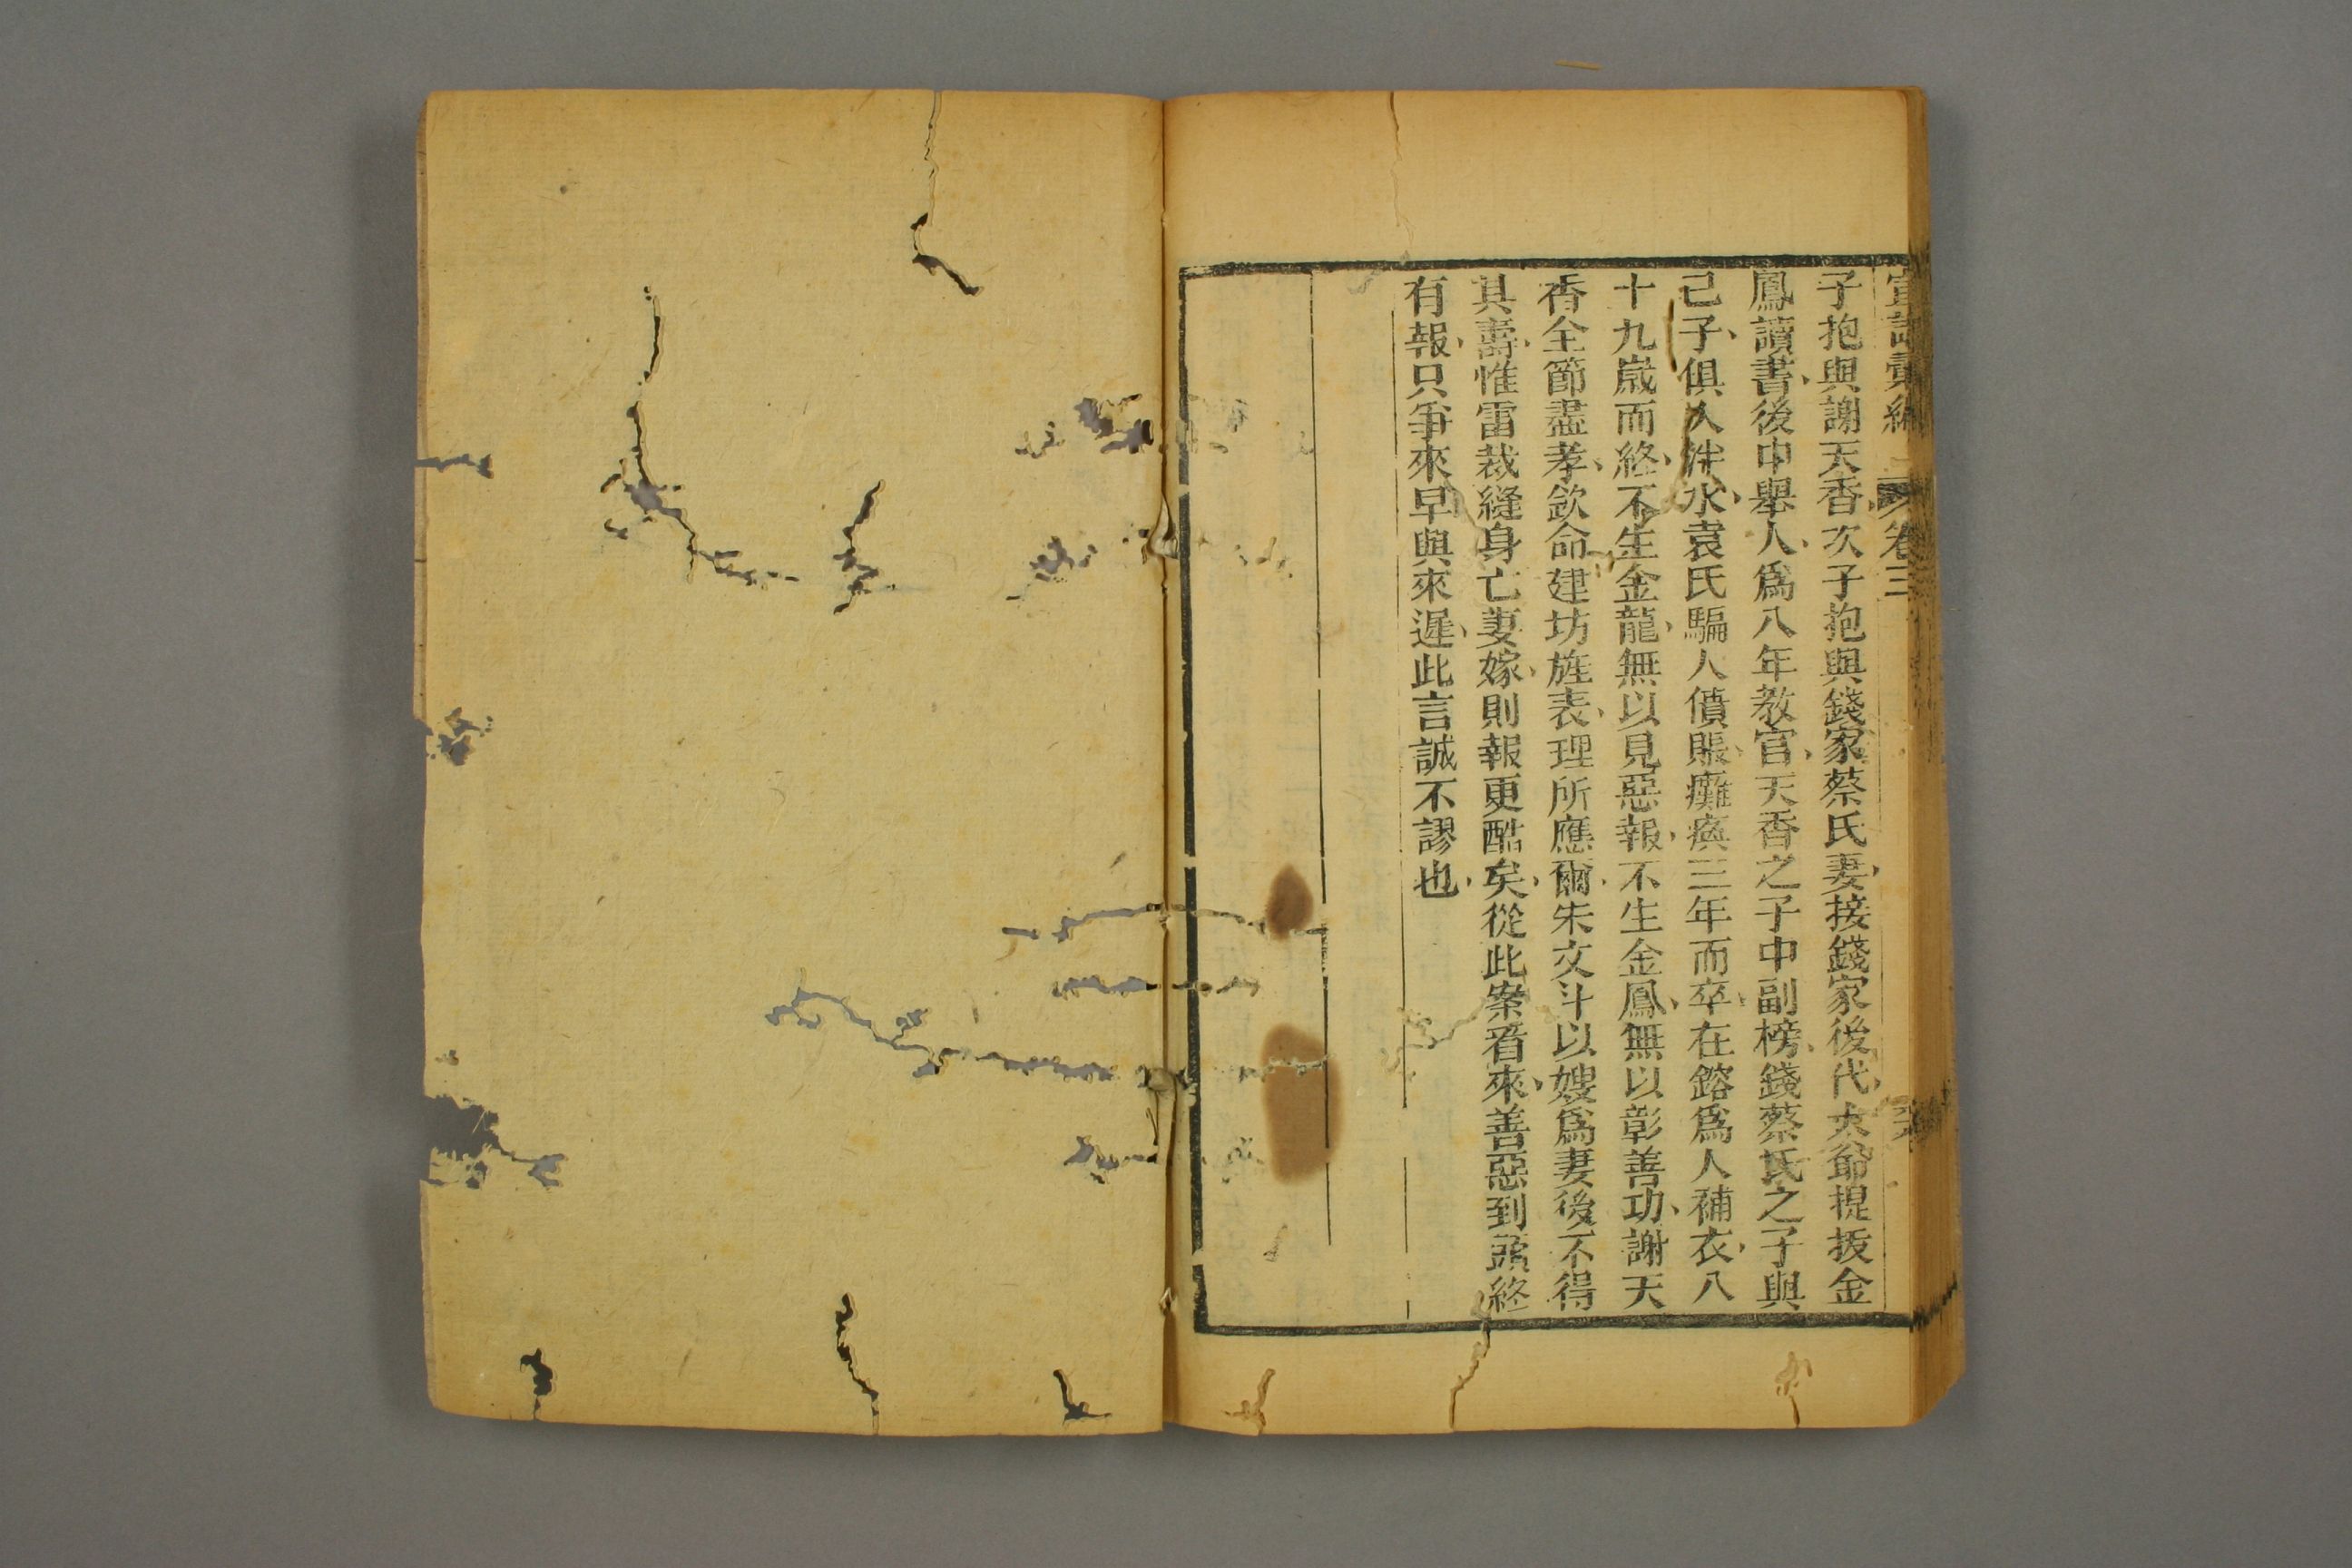 宣講彙編 卷三
子抱與謝天香次子抱與錢家蔡氏妻接錢家後代太爺提拔金
鳳讀書後中舉人爲八年教官天香之子中副榜錢蔡氏之子與
己子俱入泮水袁氏騙人債賬癱瘓三年而卒在鎔爲人補衣八
十九歲而終不生金龍無以見惡報不生金鳳無以彰善功謝天
香全節盡孝欽命建坊旌表理所應爾朱文斗以嫂爲妻後不得
其壽惟雷裁縫身亡妻嫁則報更酷矣從此案看來善惡到頭終
有報只爭來早與來遲此言誠不謬也